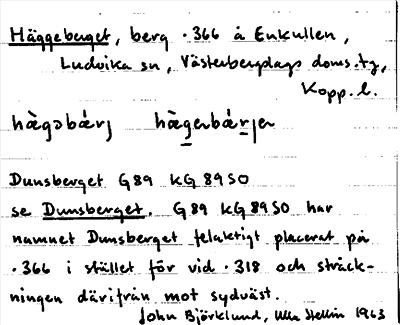 Häggeberget, berg .366 å Enkullen,
Ludvika sn, Västerbergslags doms.tg,
Kopp. l.
hàgəbárj hàgerbárjer
Dunsberget G89 KG 89 SO
se Dunsberget. G89 KG 89 SO har
namnet Dunsberget felaktigt placerat på
.366 i stället för vid .318 och sträck-
ningen därifrån mot sydväst.
John Björklund, Ulla Stellin 1963